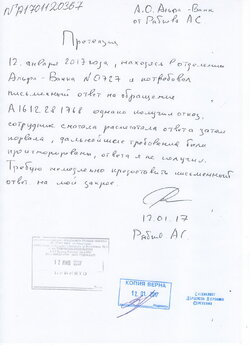 №А1701120367
А.О. Альфа-Банк
от Рябцев АС
Претензия
12. января 2017 года, находясь в отделении
Альфа-Банка №0727 я потребовал
письменный ответ на обращение
А1612.28 1768. однако получил отказ,
сотрудник сначала распечатала ответ а затем
порвала, дальнейшие требования были
проигнорированы, ответа я не получил.
Требую немедленно предоставить письменный
ответ на мой запрос.
12.01.17
Рябцев АС
12 ЯНВ 2017
ПРИНЯТО
КОПИЯ ВЕРНА
12 01 2017